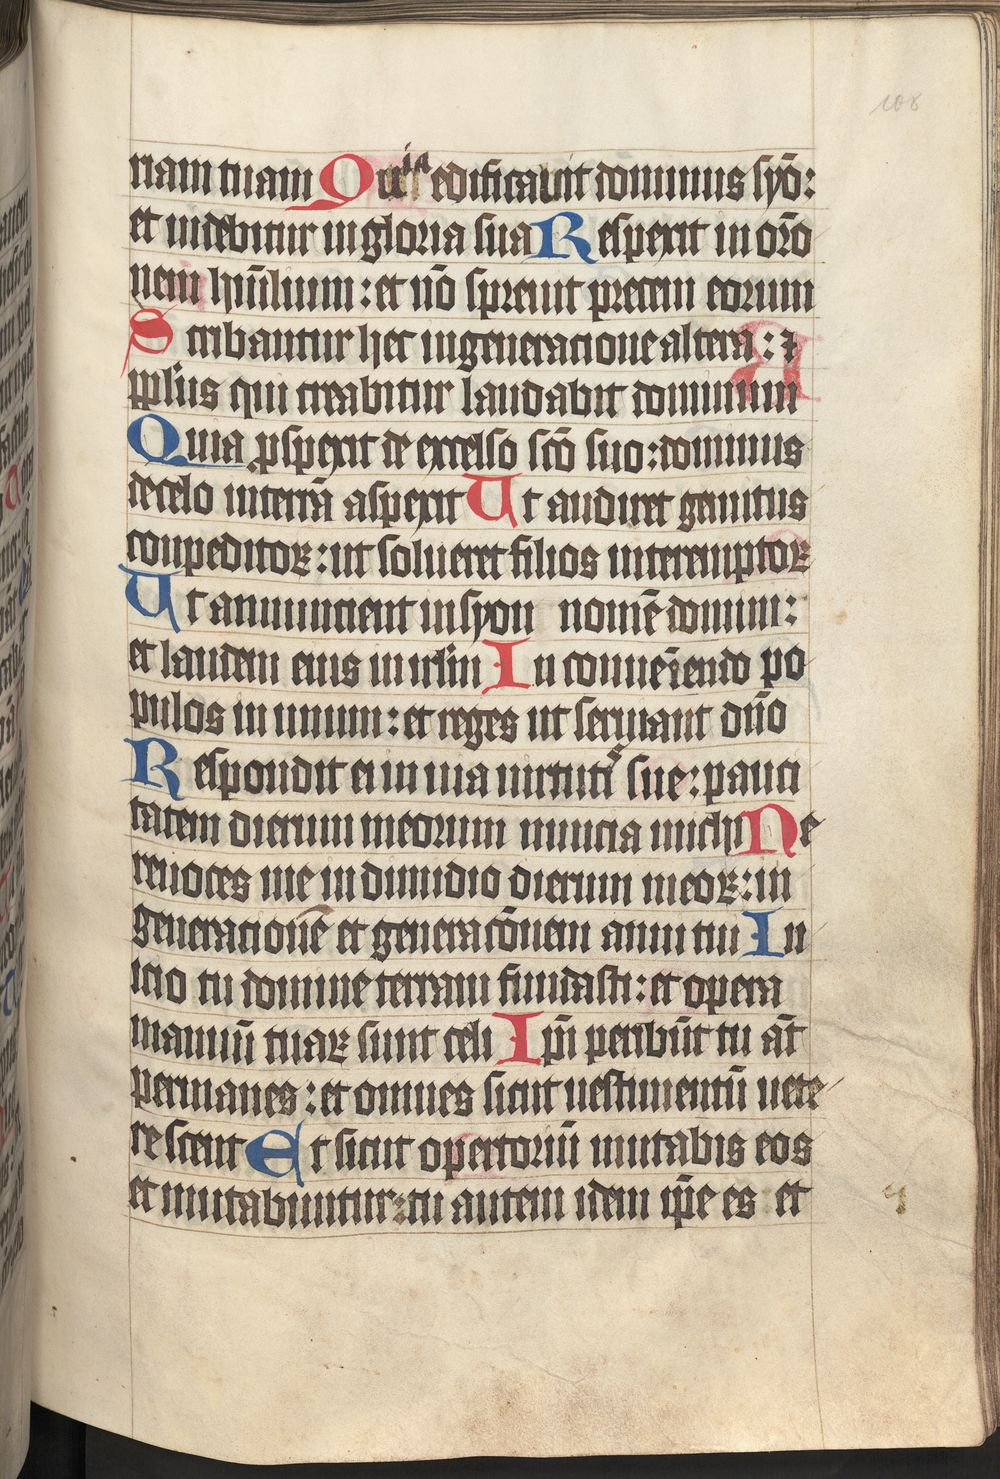 108
riam tuam Quia edificauit dominus syō:
et uidebitur in gloria sua Respexit in orō
nem hūilium: et nō spreuit precem eorum
Scribantur hec in generatione altera: ⁊
pplūs qui creabitur laudabit dominum
Quia ꝓspexit de excelso scō suo: dominus
de celo in terrā aspexit Ut audiret gemitus
conpeditoꝝ: ut solueret filios interemptoꝝ
Ut annuncient in syon nomē domini:
et laudem eius in irl̄m In conueīendo po
pulos in unum: et reges ut seruiant dn̄o
Respondit ei in uia uirtutis sue: pauci
tatem dierum meorum nuncia michi Ne
reuoces me in dimidio dierum meoꝝ: in
generationē et generacōnem anni tui In
icio tu domine terram fundasti: et opera
manuū tuaꝝ sunt celi Ip̄i peribūt tu āt
permanes: et omnes sicut uestimentū uete
rescent Et sicut opertoriū mutabis eos
et mutabuntur: tu autem idem ip̄e es et